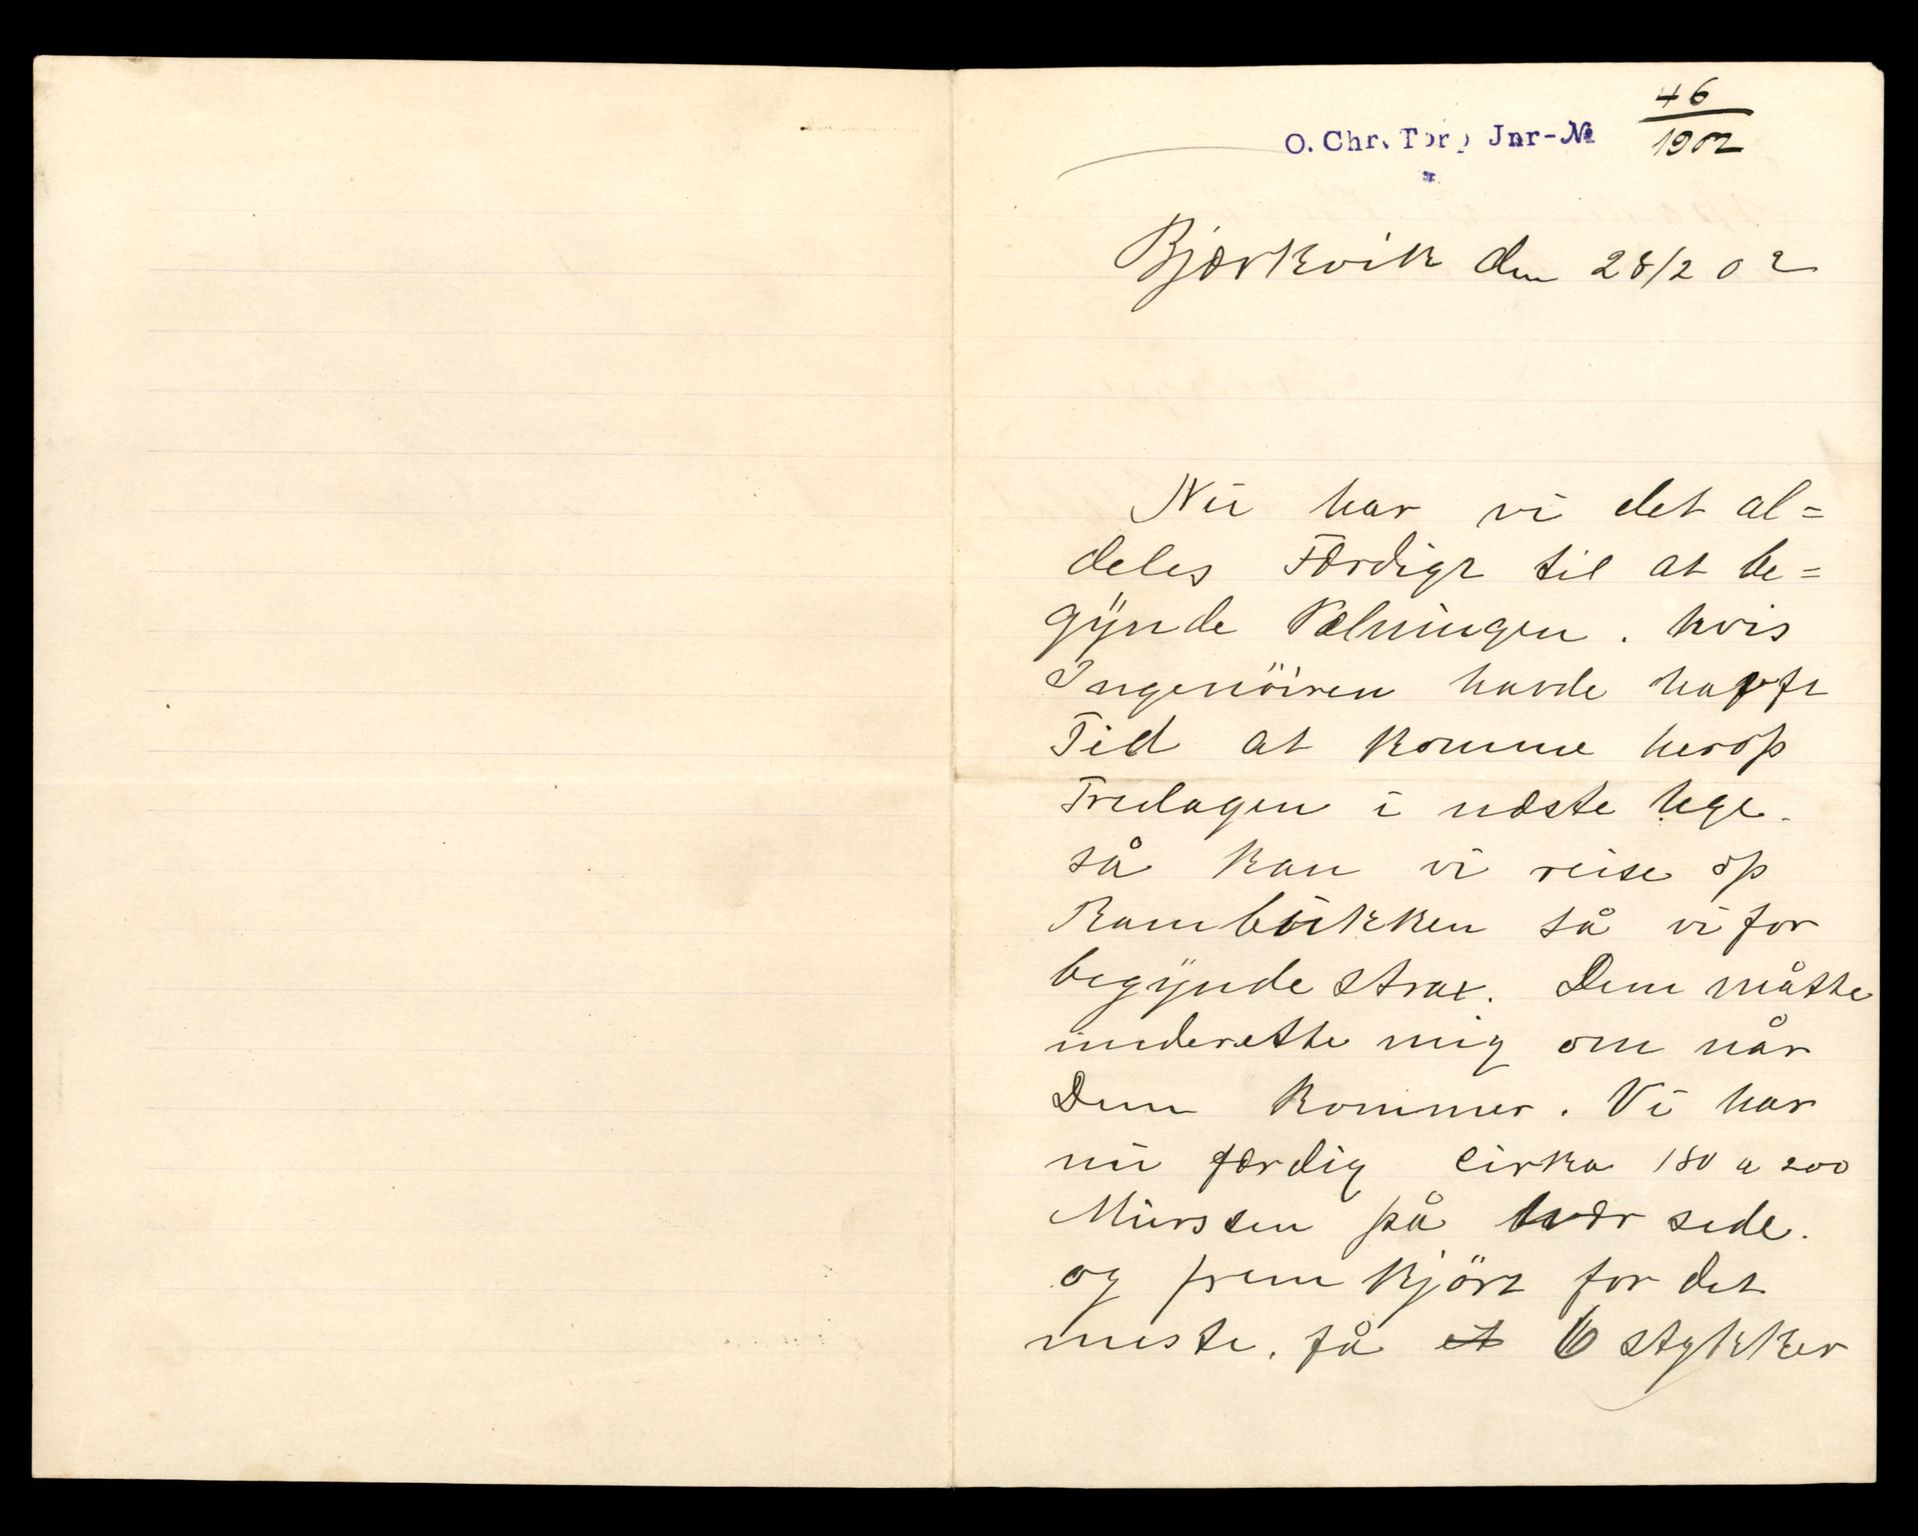 46
O. Chr. Torp Jnr-№ 1902
Bjærkvik den 28/2 02
Nu har vi det al=
deles Færdigt til at be=
gynde Pælningen. hvis
Ingeniøiren havde hafft
Tid at komme herop
Fredagen i næste Uge.
så kan vi reise op
Rambukken så vi for
begynde strax. Dem måtte
underette mig om når
Dem kommer. Vi har
nu færdig cirka 180 a 200
Mursten på hvær side.
og frem kjört for det
meste. få et 6 stykker